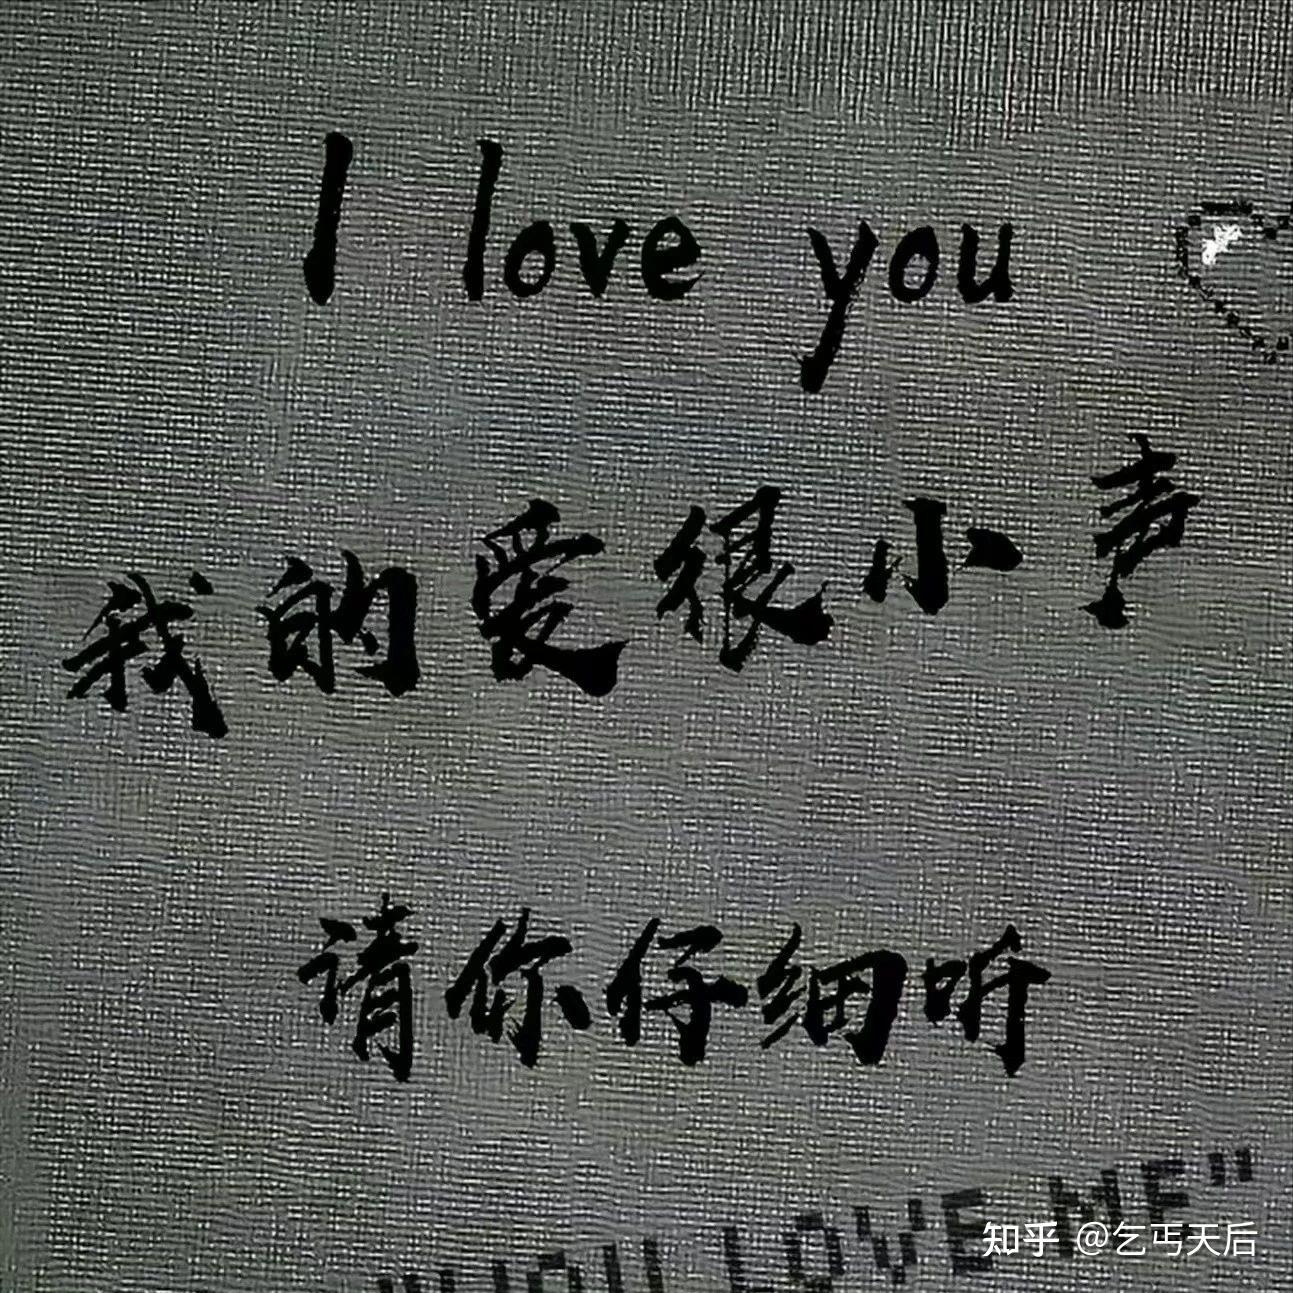 I love you
我的爱很小声
请你仔细听
"YOU LOVE ME"
知乎 @乞丐天后